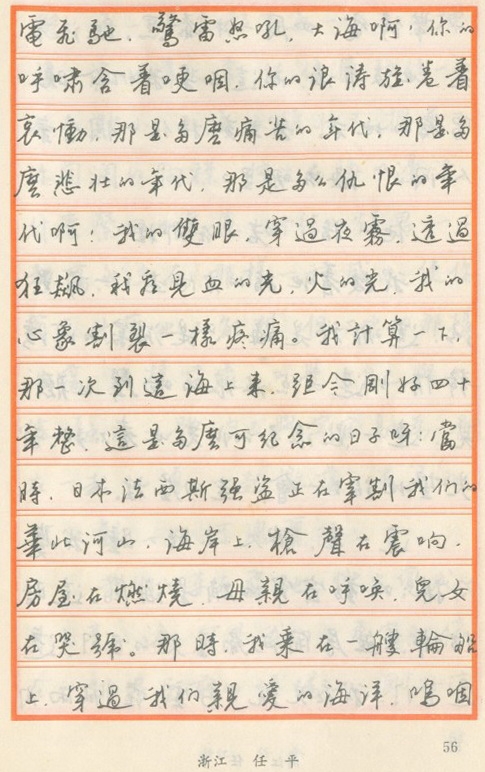 電飛馳，驚雷怒吼，大海啊，你的
呼嘯含着哽咽，你的浪涛旋卷着
哀慟，那是多麼痛苦的年代，那是多
麼悲壮的年代，那是多么仇恨的年
代啊！我的雙眼，穿過夜霧，透過
狂飙，我看見血的光，火的光，我的
心象割裂一樣疼痛。我計算一下，
那一次到這海上来，距今剛好四十
年整，這是多麼可纪念的日子呀！當
時，日本法西斯强盗正在宰割我们的
華北河山，海岸上，槍聲在震响，
房屋在燃燒，母親在呼唤，兒女
在哭號。那時，我乘在一艘輪船
上，穿過我们親愛的海洋，嗚咽
56
浙江 任 平